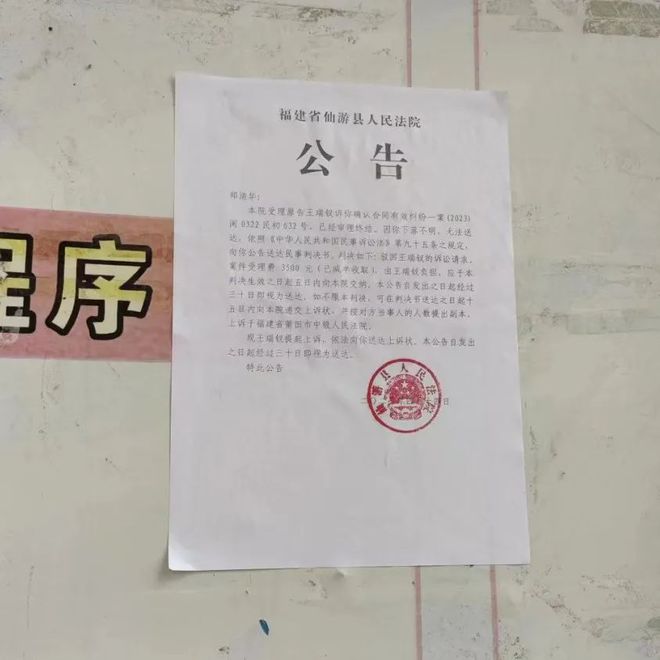 福建省仙游县人民法院
公 告
郑清华：
本院受理原告王瑞钗诉你确认合同有效纠纷一案（2023）
闽0322民初632号，已经审理终结。因你下落不明，无法送
达，依照《中华人民共和国民事诉讼法》第九十五条之规定，
向你公告送达民事判决书，判决如下：驳回王瑞钗的诉讼请求。
案件受理费3500元（已减半收取），由王瑞钗负担，应于本
判决生效之日起五日内向本院交纳。本公告自发出之日起经过
三十日即视为送达。如不服本判决，可在判决书送达之日起十
五日内向本院递交上诉状，并按对方当事人的人数提出副本，
上诉于福建省莆田市中级人民法院。
现王瑞钗提起上诉，依法向你送达上诉状。本公告自发出
之日起经过三十日即视为送达。
特此公告
仙游县人民法院
日
程序